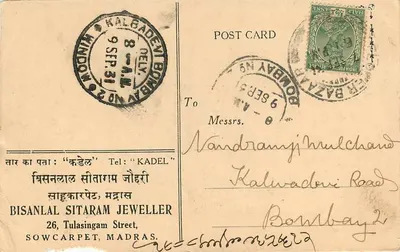 POST CARD
KALBADEVI BOMBAY No 2
DELY.
8 - A.M.
9 SEP. 31
BOMBAY No
8 - A.M.
9 SEP. 3
BAZAAR
To
Messrs.
Nandramji Mulchand
Kalvadevi Road
Bombay 2
तार का पता: "कडेल" Tel: "KADEL"
बिसनलाल सीताराम जौहरी
साहुकारपेट, मद्रास
BISANLAL SITARAM JEWELLER
26, Tulasingam Street,
SOWCARPET, MADRAS.